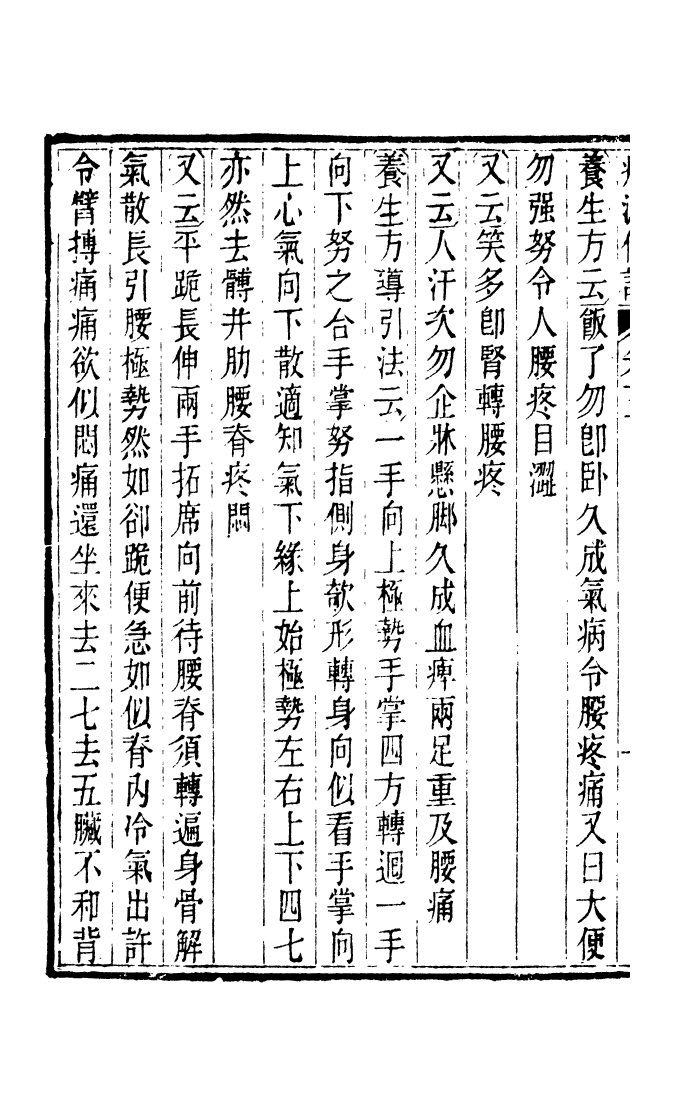 養生方云飯了勿卽臥久成氣病令腰疼痛又曰大便
勿强努令人腰疼目澀
又云笑多卽腎轉腰疼
又云人汗次勿企牀懸脚久成血痺兩足重及腰痛
養生方導引法云一手向上極勢手掌四方轉迴一手
向下努之合手掌努指側身欹形轉身向似看手掌向
上心氣向下散適知氣下緣上始極勢左右上下四七
亦然去髆井肋腰脊疼悶
又云平跪長伸兩手拓席向前待腰脊須轉遍身骨解
氣散長引腰極勢然如卻跪便急如似脊內冷氣出許
令臂搏痛痛欲似悶痛還坐來去二七去五臟不和背